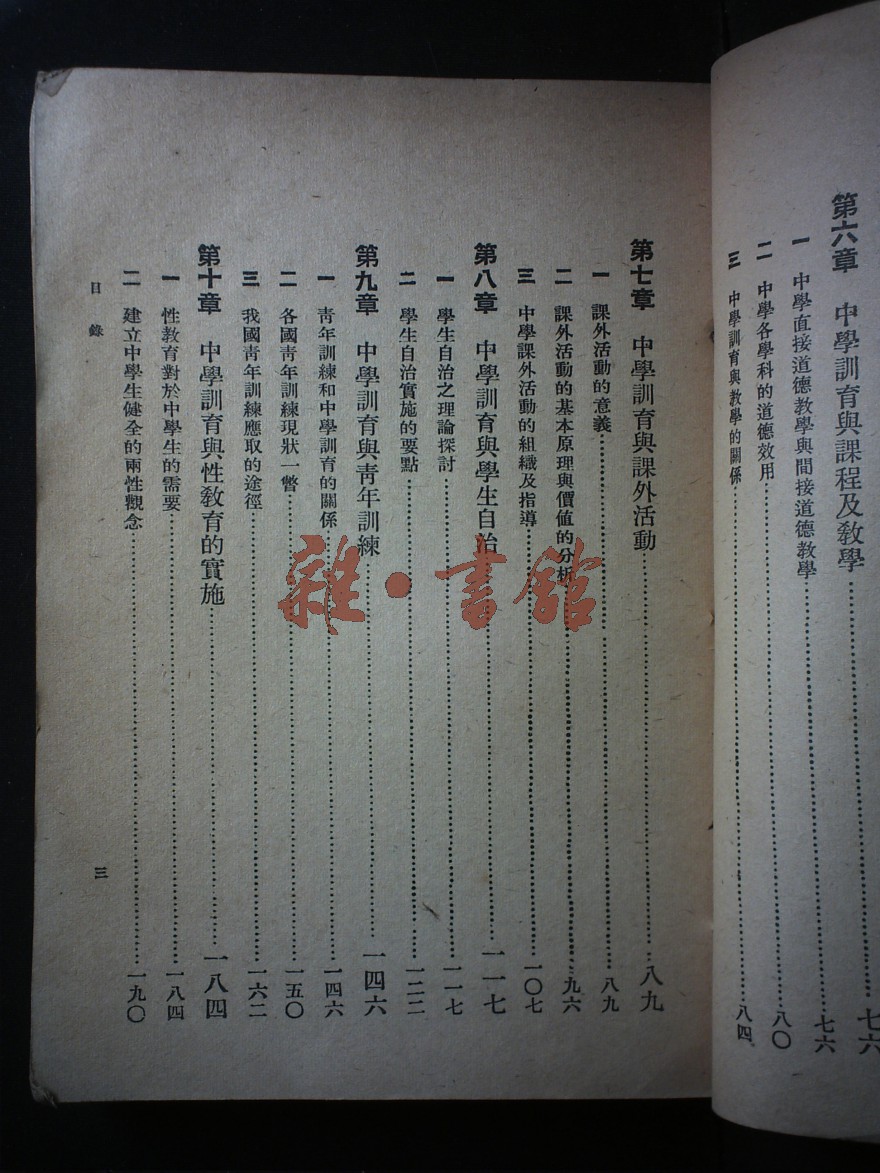 第六章　中學訓育與課程及教學……七六
一　中學直接道德教學與間接道德教學……七六
二　中學各學科的道德效用……八〇
三　中學訓育與教學的關係……八四
第七章　中學訓育與課外活動……八九
一　課外活動的意義……八九
二　課外活動的基本原理與價值的分析……九六
三　中學課外活動的組織及指導……一〇七
第八章　中學訓育與學生自治……一一七
一　學生自治之理論探討……一一七
二　學生自治實施的要點……一二二
第九章　中學訓育與靑年訓練……一四六
一　靑年訓練和中學訓育的關係……一四六
二　各國靑年訓練現狀一瞥……一五〇
三　我國靑年訓練應取的途徑……一六二
第十章　中學訓育與性教育的實施……一八四
一　性教育對於中學生的需要……一八四
二　建立中學生健全的兩性觀念……一九〇
目錄
三
雜·書館